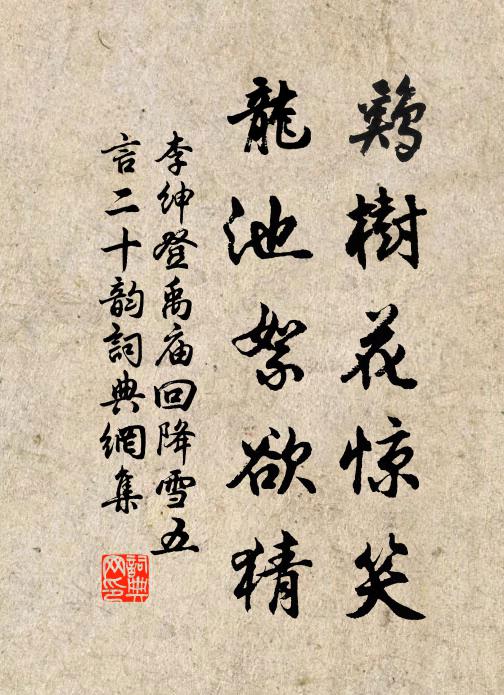 鷄樹花惊笑
龍池絮欲猜
李紳登禹庙回降雪五
言二十韵詞典網集
詞典網印